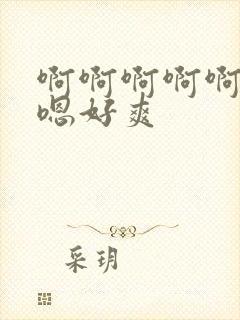 啊啊啊啊啊
嗯好爽
采玥